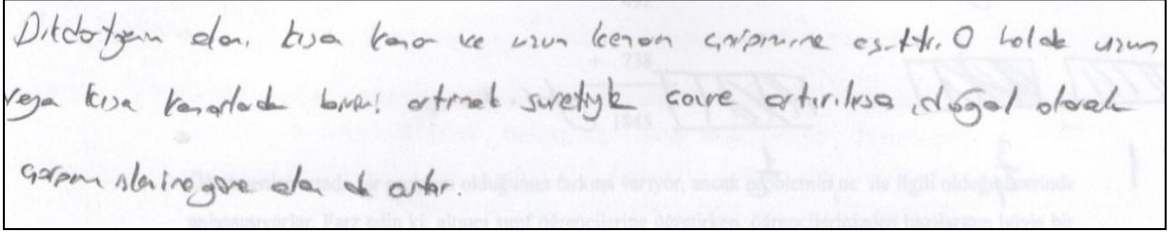 Dikdörtgenin alanı, kısa kenar ve uzun kenarın çarpımına eşittir. O halde uzun
veya kısa kenarlardan birini artırmak suretiyle çevre artırılırsa, doğal olarak
çarpım işlemine göre alan da artar.